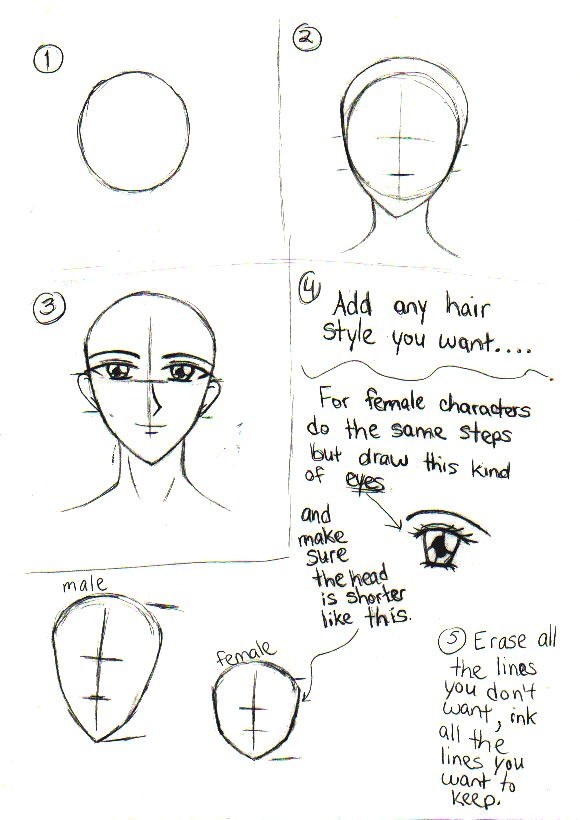 1
2
3
4
Add any hair
style you want....
For female characters
do the same steps
but draw this kind
of eyes
and
make
sure
the head
is shorter
like this.
male
female
5 Erase all
the lines
you don't
want, ink
all the
lines you
want to
keep.